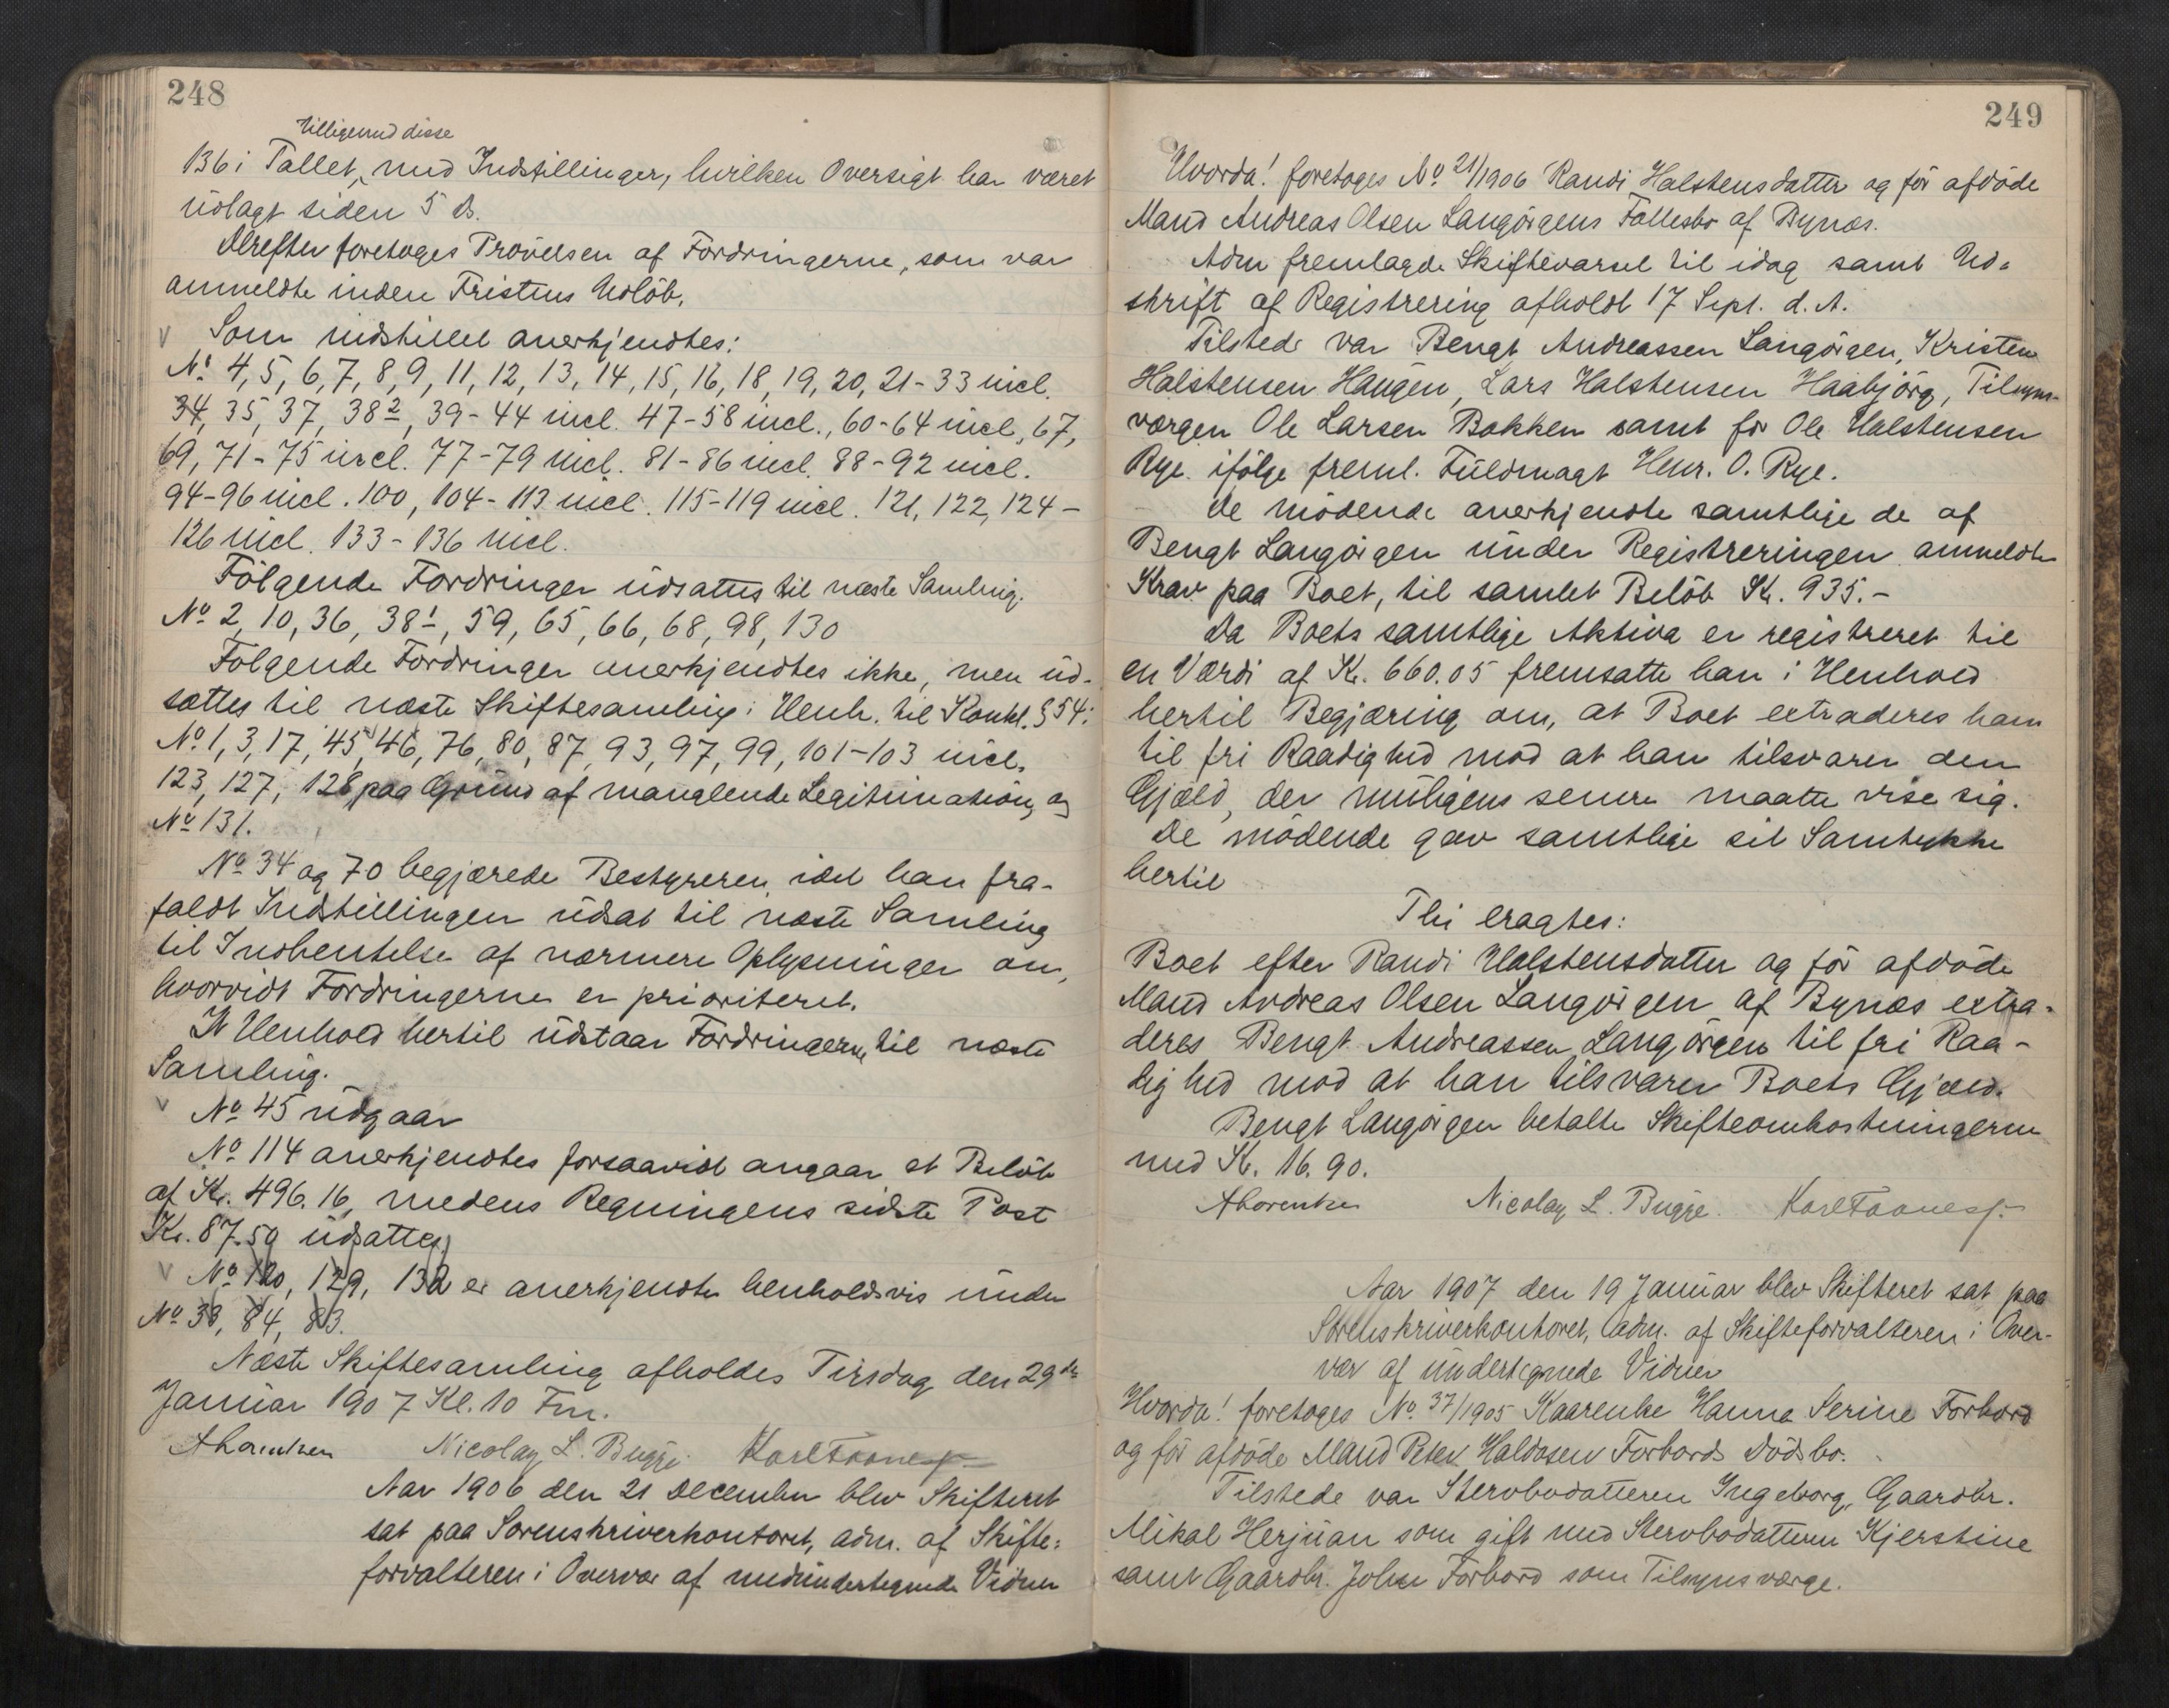 248
tilligemed disse
136 i Tallet, med Indstillinger, hvilken Oversigt har været
udlagt siden 5 ds.
Derefter foretoges Prøvelsen af Fordringerne, som var
anmeldte inden Fristens Udløb.
V Som indstillet anerkjendtes:
No 4, 5, 6, 7, 8, 9, 11, 12, 13, 14, 15, 16, 18, 19, 20, 21-33 incl.
34, 35, 37, 38², 39-44 incl. 47-58 incl., 60-64 incl., 67,
69, 71-75 incl. 77-79 incl. 81-86 incl. 88-92 incl.
94-96 incl. 100, 104-113 incl. 115-119 incl. 121, 122, 124-
126 incl. 133-136 incl.
Følgende Fordringer udsattes til næste Samling.
No 2, 10, 36, 38¹, 59, 65, 66, 68, 98, 130
Følgende Fordringer anerkjendtes ikke, men ud-
sættes til næste Skiftesamling i Henh. til Konkl. § 54:
No 1, 3, 17, 45, 46, 76, 80, 87, 93, 97, 99, 101-103 incl.
123, 127, 128 paa Grund af manglende Legitimation, og
No 131.
No 34 og 70 begjærede Bestyreren, idet han fra-
faldt Indstillingen udsat til næste Samling
til Indhentelse af nærmere Oplysninger om,
hvorvidt Fordringerne er prioriteret.
I Henhold hertil udstaar Fordringerne til næste
Samling.
V No 45 udgaar
No 114 anerkjendtes forsaavidt angaar et Beløb
af Kr. 496.16, medens Regningens sidste Post
Kr. 87.50 udsattes.
V No 120, 129, 132 er anerkjendte henholdsvis under
No 38, 84, 83.
Næste Skiftesamling afholdes Tirsdag den 29de
Januar 1907 Kl. 10 Fm.
ALorentzen Nicolay L. Bugge. Karl Faanes
Aar 1906 den 21 December blev Skifteret
sat paa Sorenskriverkontoret, adm. af Skifte-
forvalteren i Overvær af medundertegnede Vidner
249
Hvorda! foretoges No. 21/1906 Randi Halstensdatter og før afdøde
Mand Andreas Olsen Langørgens Fællesbo af Bynæs.
Adm fremlagde Skiftevarsel til idag samt Ud-
skrift af Registrering afholdt 17 Sept. d. A.
Tilstede var Bengt Andreassen Langørgen, Kristen
Halstensen Haugen, Lars Halstensen Haabjørg, Tilsyns-
værgen Ole Larsen Bakken samt for Ole Halstensen
Rye ifølge freml. Fuldmagt Henr. O. Rye.
De mødende anerkjendte samtlige de af
Bengt Langørgen under Registreringen anmeldte
Krav paa Boet, til samlet Beløb Kr. 935.-
Da Boets samtlige Aktiva er registreret til
en Værdi af Kr. 660.05 fremsatte han i Henhold
hertil Begjæring om, at Boet extraderes ham
til fri Raadighed mod at han tilsvarer den
Gjæld, der muligens senere maatte vise sig.
De mødende gav samtlige sit Samtykke
hertil
Thi eragtes:
Boet efter Randi Halstensdatter og før afdøde
Mand Andreas Olsen Langørgen af Bynæs extra-
deres Bengt Andreassen Langørgen til fri Raa-
dighed mod at han tilsvarer Boets Gjæld.
Bengt Langørgen betalte Skifteomkostningerne
med Kr. 16.90.
ALorentzen Nicolay L. Bugge. Karl Faanes
Aar 1907 den 19 Januar blev Skifteret sat paa
Sorenskriverkontoret, adm. af Skifteforvalteren i Over-
vær af undertegnede Vidner
Hvorda! foretoges No. 37/1905 Kaarenhe Hanna Serine Forbord
og før afdøde Mand Peter Haldosen Forbords Dødsbo.
Tilstede var Stervbodatteren Ingeborg, Gaardbr.
Mikal Herjuan som gift med Stervbodatteren Kjerstine
samt Gaardbr. Johan Forbord som Tilsynsværge.